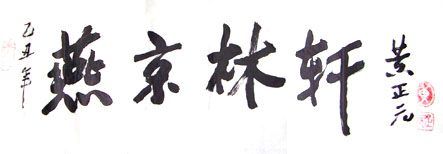 己丑年
燕京林轩
黄正元